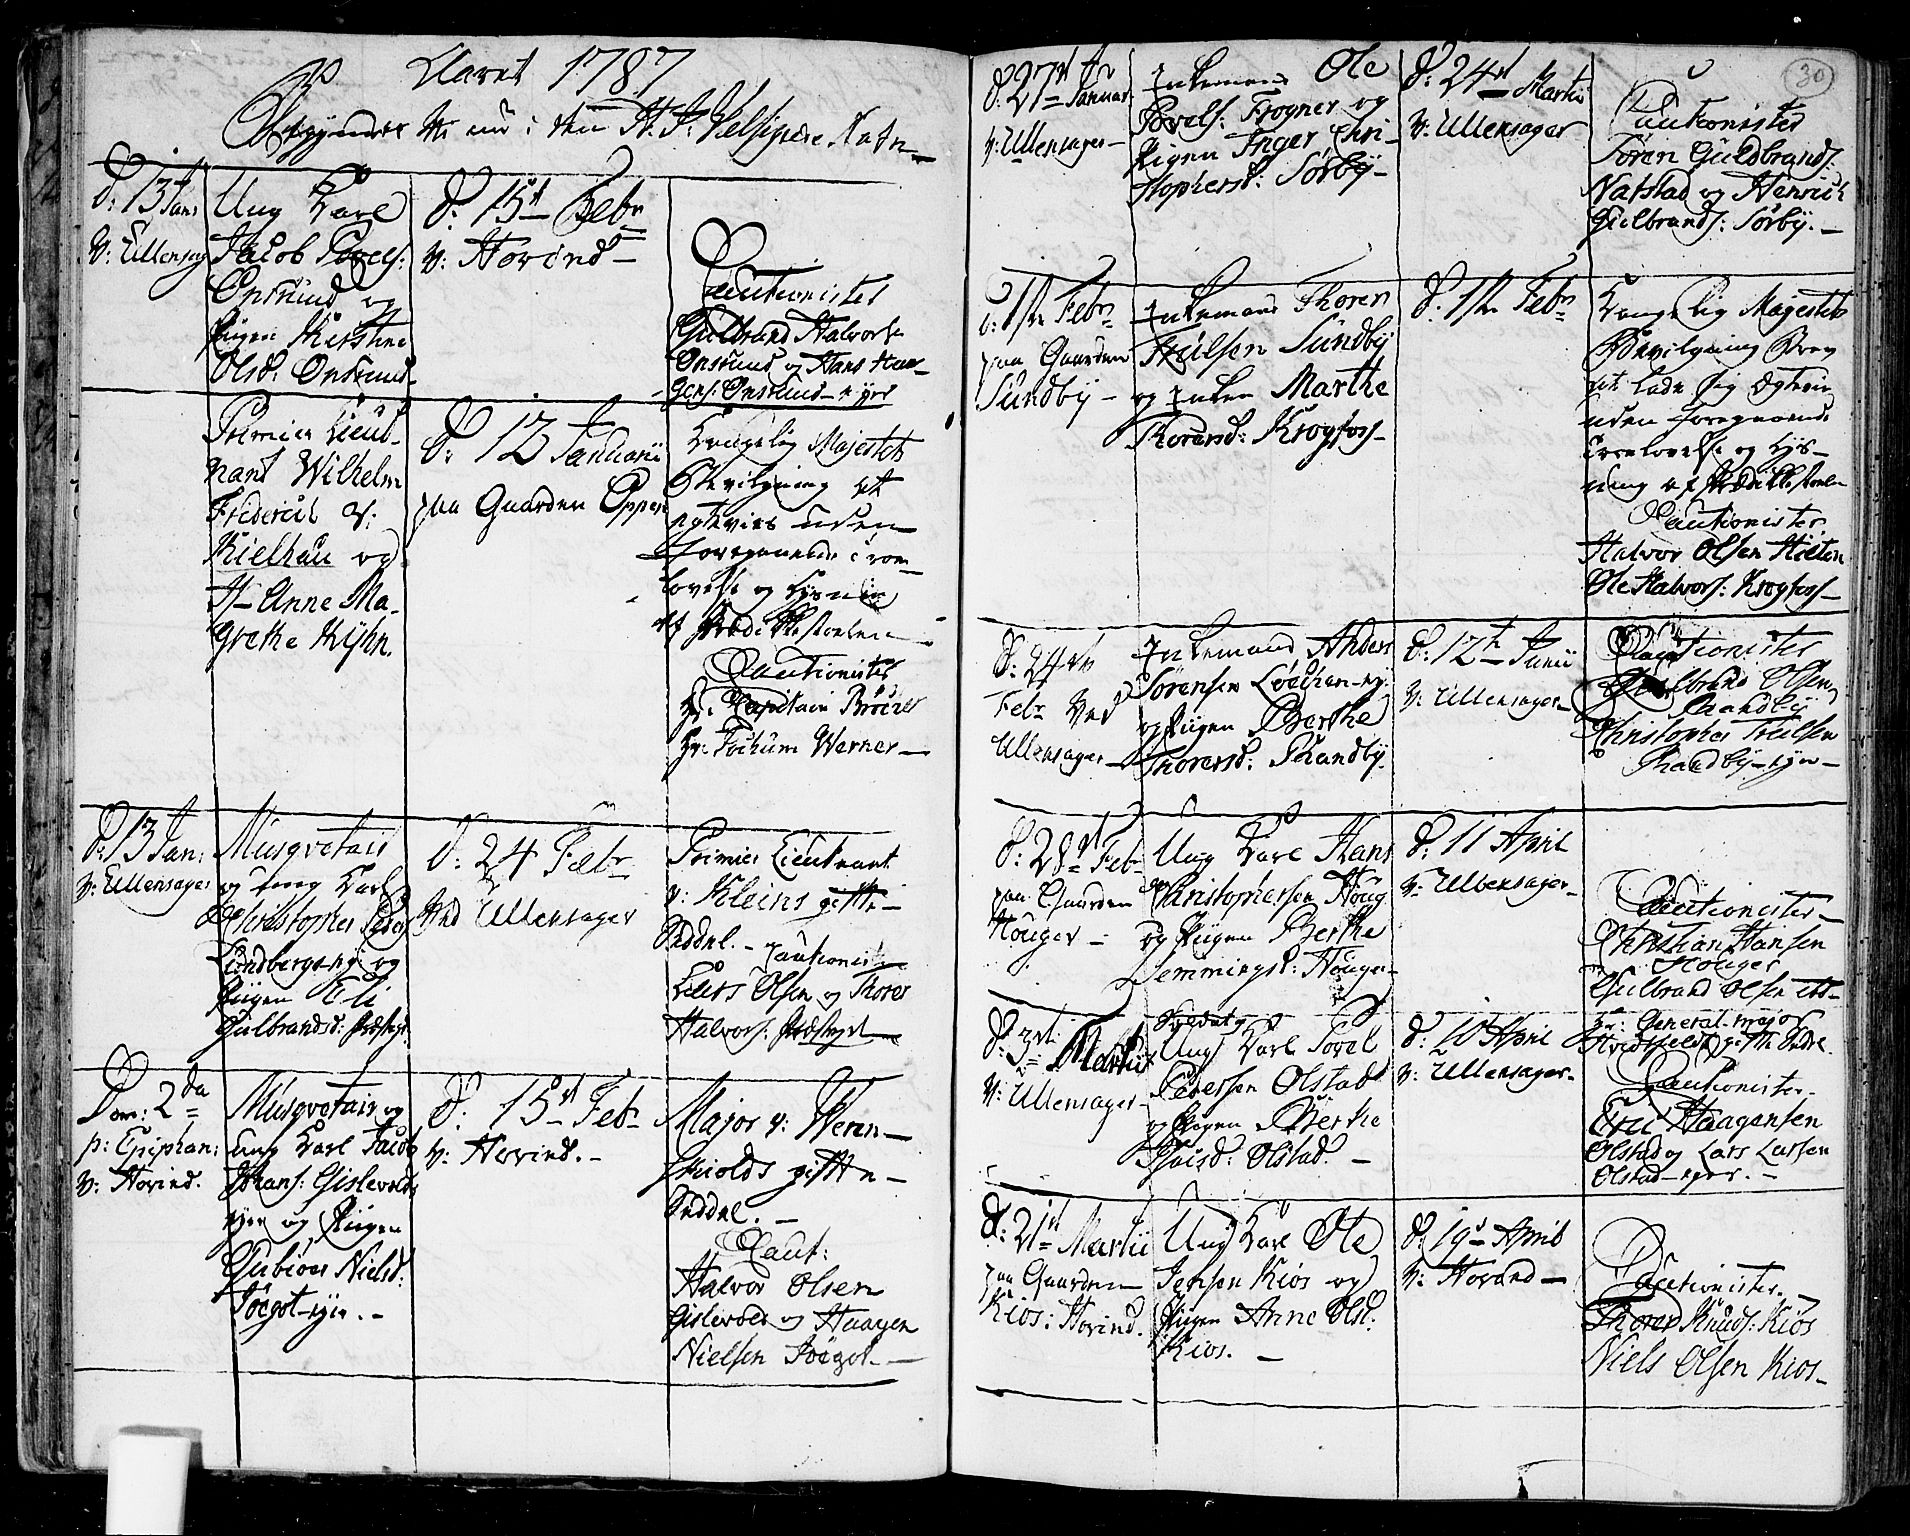 Aaret 1787
Begynder Vi nu i den H. J: Velsignede Nafn
d: 13 Jan:
V: Ullensag
Ung Karl
Jacob Povels:
Onsrud og
Pigen Kirstine
Olsd: Onsrud
d: 15de Febr
V: Hovind
Cautionister
Gulbrand Halvors:
Onsrud og Hans Haa-
gens: Onsrud - ejer
Premier Lieut-
nant Wilhelm
Friderich v:
Kielhau og
H- Anne Ma-
grethe Kyhn.
d: 12 Januarii
paa Gaarden Oppen
Kongelig Majestets
Bevilgning at
egtevies uden
foregaaende Troe-
lovelse og Lysning
af Prædikkestoelen
Cautionister
Hr: Capitain
Hr: Jochum Werner
d: 13 Jan:
V: Ullensager
Musqvetair
og ung Karl
Christopher Peders
Lundberg-ej: og
Pigen Eli
Gulbrandsd:
d: 24 Febr
Ved Ullensager
Primier Lieutnant
v: Kleins gifte-
Seddel. - Cautionister
Lars Olsen og Thorer
Halvors:
Dom: 2da
p: Epiphan:
V: Hovind.
Musqvetair og
ung Karl Jacob
Johans: Gislevold-
ejer og Pigen
Gubiør Nielsd:
Jôegot-ejer. -
d: 15de Febr
V: Hovind. -
Major v: Wenn-
skiolds gifte
Seddel. -
Caut:
Halvor Olsen
Gislevold og Haagen
Nielsen Jôegot. -
30
d: 27de Januar:
V: Ullensager
Enkemand Ole
Povels: Frogner og
Pigen Inger Chri-
stophersd: Sørby
d: 24de Martii
V: Ullensager
Cautionister
Sören Guldbrands:
Natstad og Henrich
Gulbrands: Sørby. -
d: 1ste Febr
paa Gaarden
Sundby -
Enkemand Thoren
Truelsen Sundby
og Enken Marthe
Thorersd: Krogfoss
d: 1ste Febr
Kongelig Majestets
Bevilgning
at lade sig egtevie
uden foregaaende
Troelovelse og Lys-
ning af Prædikkestoelen
Cautionister
Halvor Olsen
Ole Halvors: Krogfoss
d: 24de
Febr Ved
Ullensager
Enkemand Anders
Sörensen
og Pigen Berthe
Thorersd: Skandby.
d: 12te Junii
V: Ullensager
Cautionister
Gulbrand Olsen
Skandby
Christopher Truelsen
Skandby - ejer -
d: 28de Feb
paa Gaarden
Houger -
Ung Karl Hans
Christophersen Houg
og Pigen Berthe
Hemmingsd: Houger
d: 11 April
V: Ullensager
Cautionister
Christian Hansen
Houger
Gulbrand Olsen
d: 3de Martii
V: Ullensager
Soldat og
Ung Karl Povel
Pedersen Olstad
og Pigen Berthe
Olstad. -
d: 10 April
V: Ullensager.
Hr: General-major
Cautionister.
Haagensen
Olstad og Lars Larsen
Olstad - ejer. -
d: 21de Martii
paa Gaarden
Kios: Hovind.
Ung Karl Ole
Jensen Kios og
Pigen Anne Olsd:
Kios. -
d: 19de April
V: Hovind -
Cautionister. -
Thorer Knuds: Kios
Niels Olsen Kios